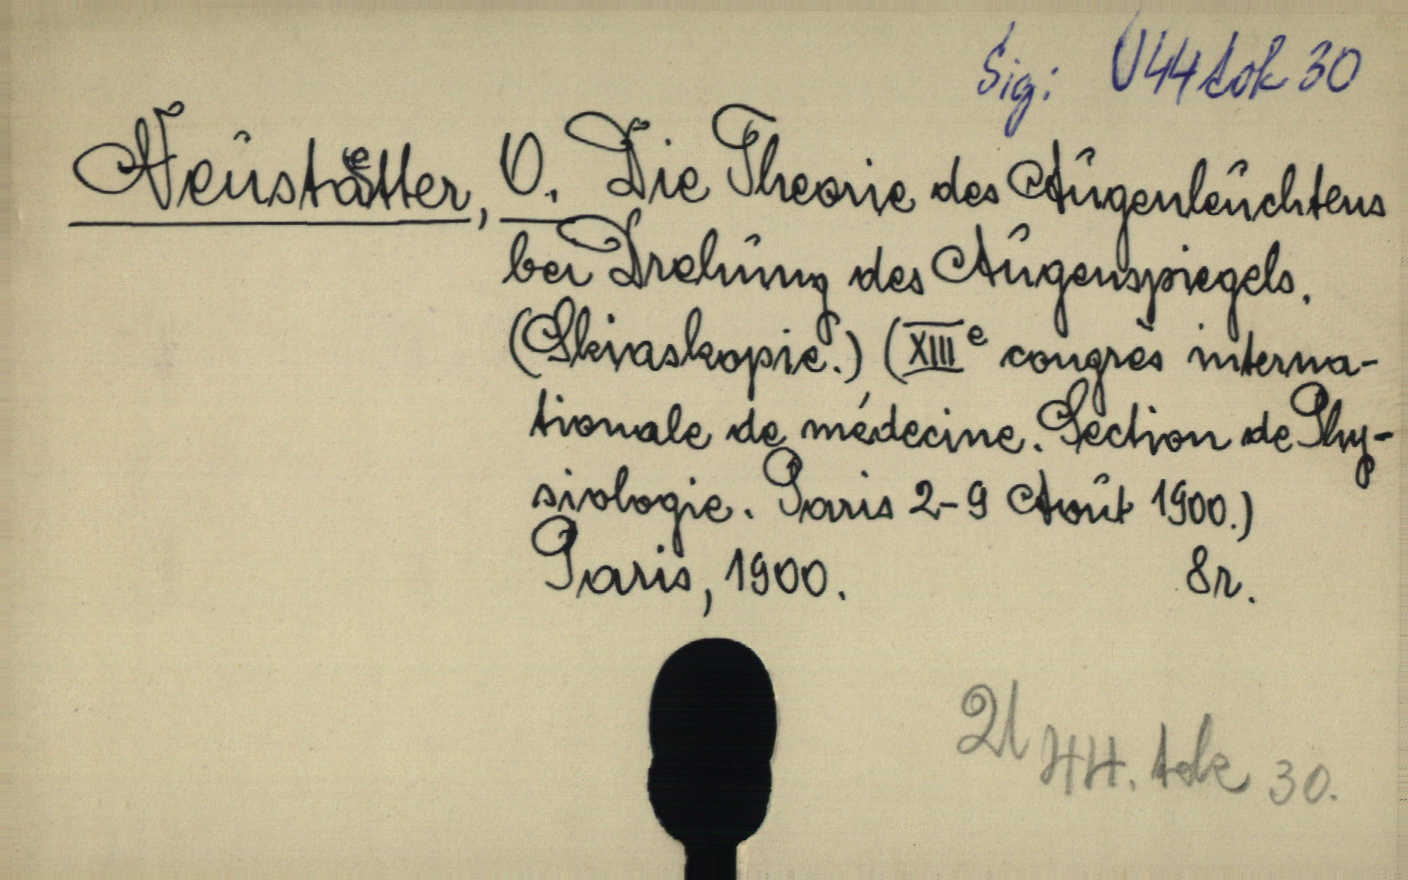 Sig: U44 tok 30
Neustaetter, O. Die Theorie des Augenleuchtens
bei Drehung des Augenspiegels.
(Skiaskopie.) (XIIIe congrès interna-
tionale de médecine. Section de Phy-
siologie. Paris 2-9 Août 1900.)
Paris, 1900. 8r.
44. tok 30.